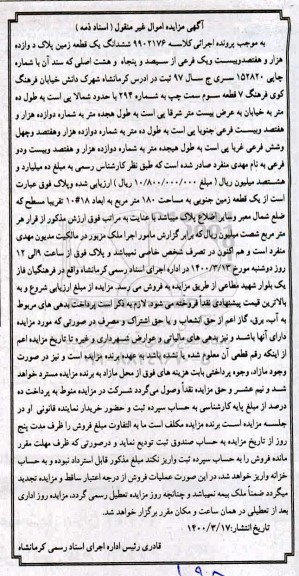 آگهی مزایده اموال غیر منقول ( اسناد ذمه )
به موجب پرونده اجرائی کلاسه ۹۹۰۲۱۷۶ ششدانگ یک قطعه زمین پلاک د وازده
هزار و هفتصدوبیست ویک فرعی از سیصد و پنجاه و هشت اصلی که سند آن با شماره
چاپی ۱۵۲۸۲۰ سری ج سال ۹۷ ثبت در ادرس کرمانشاه شهرک دانش خیابان فرهنگ
کوی فرهنگ ۷ قطعه سوم سمت چپ به شماره ۲۹۴ با حدود شمالا پی است به طول ده
متر به خیابان به عرض بیست متر شرقا پی است به طول هجده متر به شماره دوازده هزار و
هفتصد وبیست فرعی جنوبا پی است به طول ده متر به شماره دوازده هزار وهفتصد وچهل
وشش فرعی غربا پی است به طول هیجده متر به شماره دوازده هزار و هفتصد وبیست ودو
فرعی به نام مهدی منفرد صادر شده است که طبق نظر کارشناس رسمی به مبلغ ده میلیارد و
هشتصد میلیون ریال ( مبلغ ۱۰/۸۰۰/۰۰۰/۰۰۰ ریال ) ارزیابی شده وپلاک فوق عبارت
است از یک قطعه زمین جنوبی به مساحت ۱۸۰ متر مربع به ابعاد ۱۸#۱۰ تقریبا مسطح که
ضلع شمال معبر وسایر اضلاع پلاک میباشد با عنایت به مراتب فوق ارزش مذکور از قرار هر
متر مربع شصت میلیون ریال که برابر گزارش مامور اجرا ملک مزبور در مالکیت مدیون مهدی
منفرد است و هم اکنون در تصرف شخص خاصی نمیباشد و پلاک فوق از ساعت ۹ الی ۱۲
روز دوشنبه مورخ ۱۴۰۰/۳/۱۳ در اداره اجرای اسناد رسمی کرمانشاه واقع در فرهنگیان فاز
یک بلوار شهید مطاعی از طریق مزایده به فروش می رسد. مزایده از مبلغ ارزیابی شروع و به
بالاترین قیمت پیشنهادی نقدا فروخته می شود. لازم به ذکر است پرداخت بدهی های مربوط
به آب، برق، گاز اعم از حق انشعاب و یا حق اشتراک و مصرف در صورتی که مورد مزایده
دارای آنها باشد و نیز بدهی های مالیاتی و عوارض شهرداری و غیره تا تاریخ مزایده اعم
از اینکه رقم قطعی آن معلوم شده یا نشده باشد به عهده برنده مزایده است و نیز در صورت
وجود مازاد، وجوه پرداختی بابت هزینه های فوق از محل مازاد به برنده مزایده مسترد خواهد
شد و نیم عشر و حق مزایده نقداً وصول میگردد شرکت در مزایده منوط به پرداخت ده
درصد از مبلغ پایه کارشناسی به حساب سپرده ثبت و حضور خریدار نماینده قانونی او در
جلسه مزایده است. برنده مزایده مکلف است ما به التفاوت مبلغ فروش را ظرف مدت پنج
روز از تاریخ مزایده به حساب صندوق ثبت تودیع نماید و درصورتی که ظرف مهلت مقرر
مانده فروش را به حساب سپرده ثبت واریز نکند مبلغ مذکور قابل استرداد نبوده و به حساب
خزانه واریز خواهد شد. در این صورت عملیات فروش از درجه اعتبار ساقط و مزایده تجدید
میگردد ضمناً ملک بیمه نمیباشد و چنانچه روز مزایده تعطیل رسمی گردد، مزایده روز اداری
بعد از تعطیلی در همان ساعت و مکان مقرر برگزار خواهد شد.
تاریخ انتشار: ۱۴۰۰/۳/۱۷
قادری رئیس اداره اجرای اسناد رسمی کرمانشاه